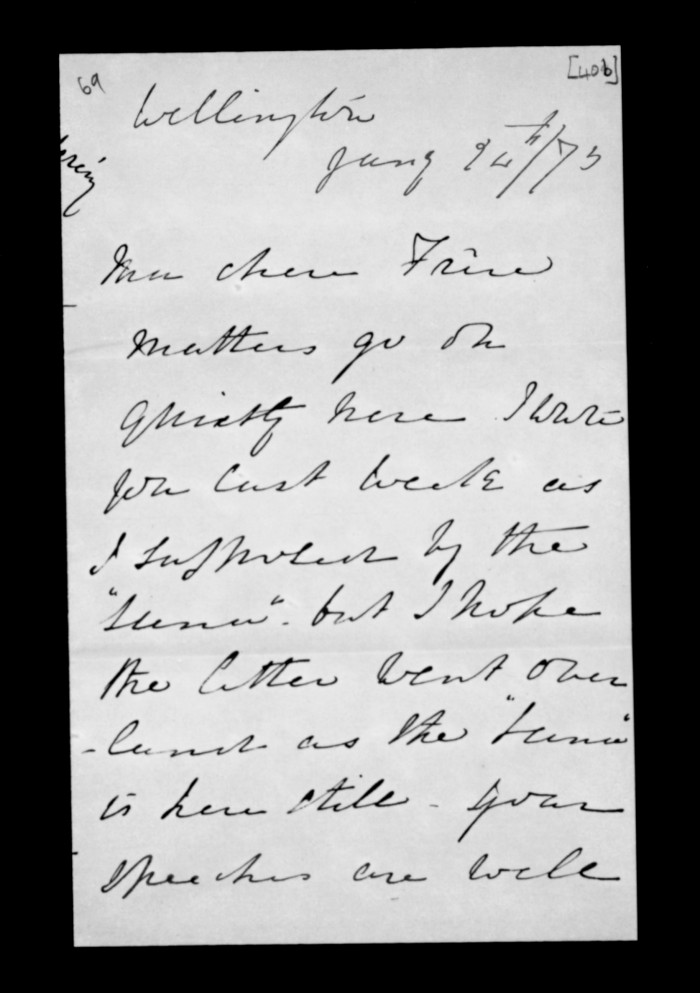 69
[406]
Wellington
Jany 24th/73
Mon chere Frère
Matters go on
quietly here I wrote
you last week as
I supposed by the
"Luna" - but I hope
the letter went over
-land as the "Luna"
is here still - your
speeches are well